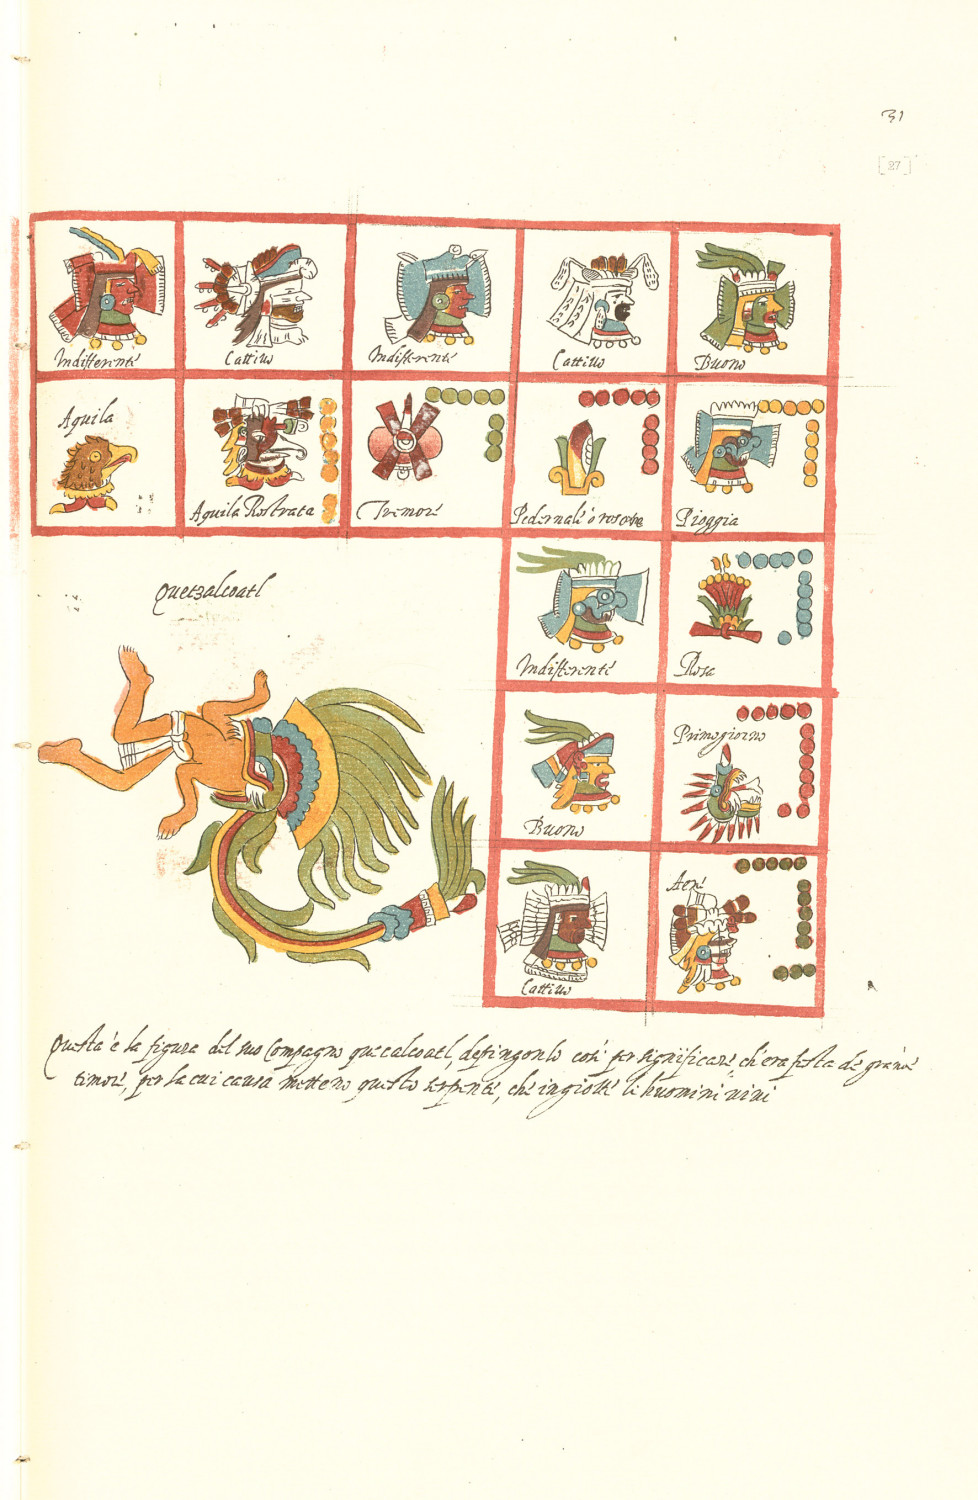 31
[27]
Indifferente
Cattiuo
Indifferente
Cattiuo
Buono
Aquila
Aquila Rostrata
Tremore
Pedernale o
Pioggia
Quetzalcoatl
Indifferente
Rosa
Buono
Primo giorno
Cattiuo
Aere
Questa è la figura del suo Compagno quecalcoatl, depingonlo cosi per significare ch'era festa de grande
timore, per la cui causa metteno questo serpente, che ingiotte li huomini uiui